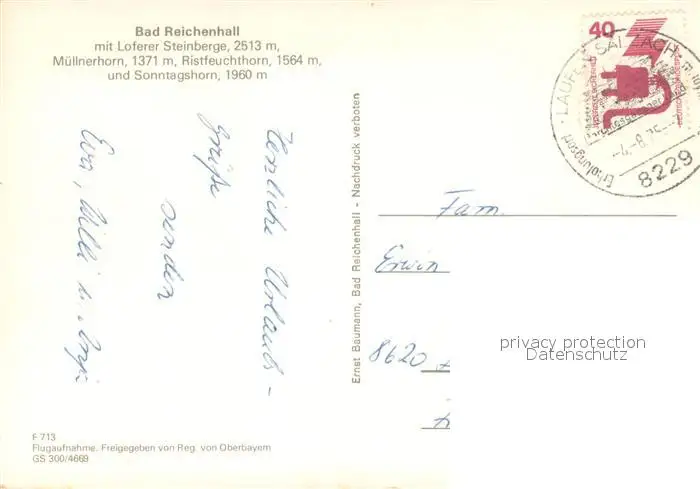 Bad Reichenhall
mit Loferer Steinberge, 2513 m,
Müllnerhorn, 1371 m, Ristfeuchthorn, 1564 m,
und Sonntagshorn, 1960 m
Herzliche Urlaubs-
Grüße
senden
Eva, Willi u. Anja
F 713
Flugaufnahme. Freigegeben von Reg. von Oberbayern
GS 300/4669
Ernst Baumann, Bad Reichenhall - Nachdruck verboten
40
LAUFEN SALZACH
Erholungsort
8229
Fam.
Erwin
8620
privacy protection
Datenschutz